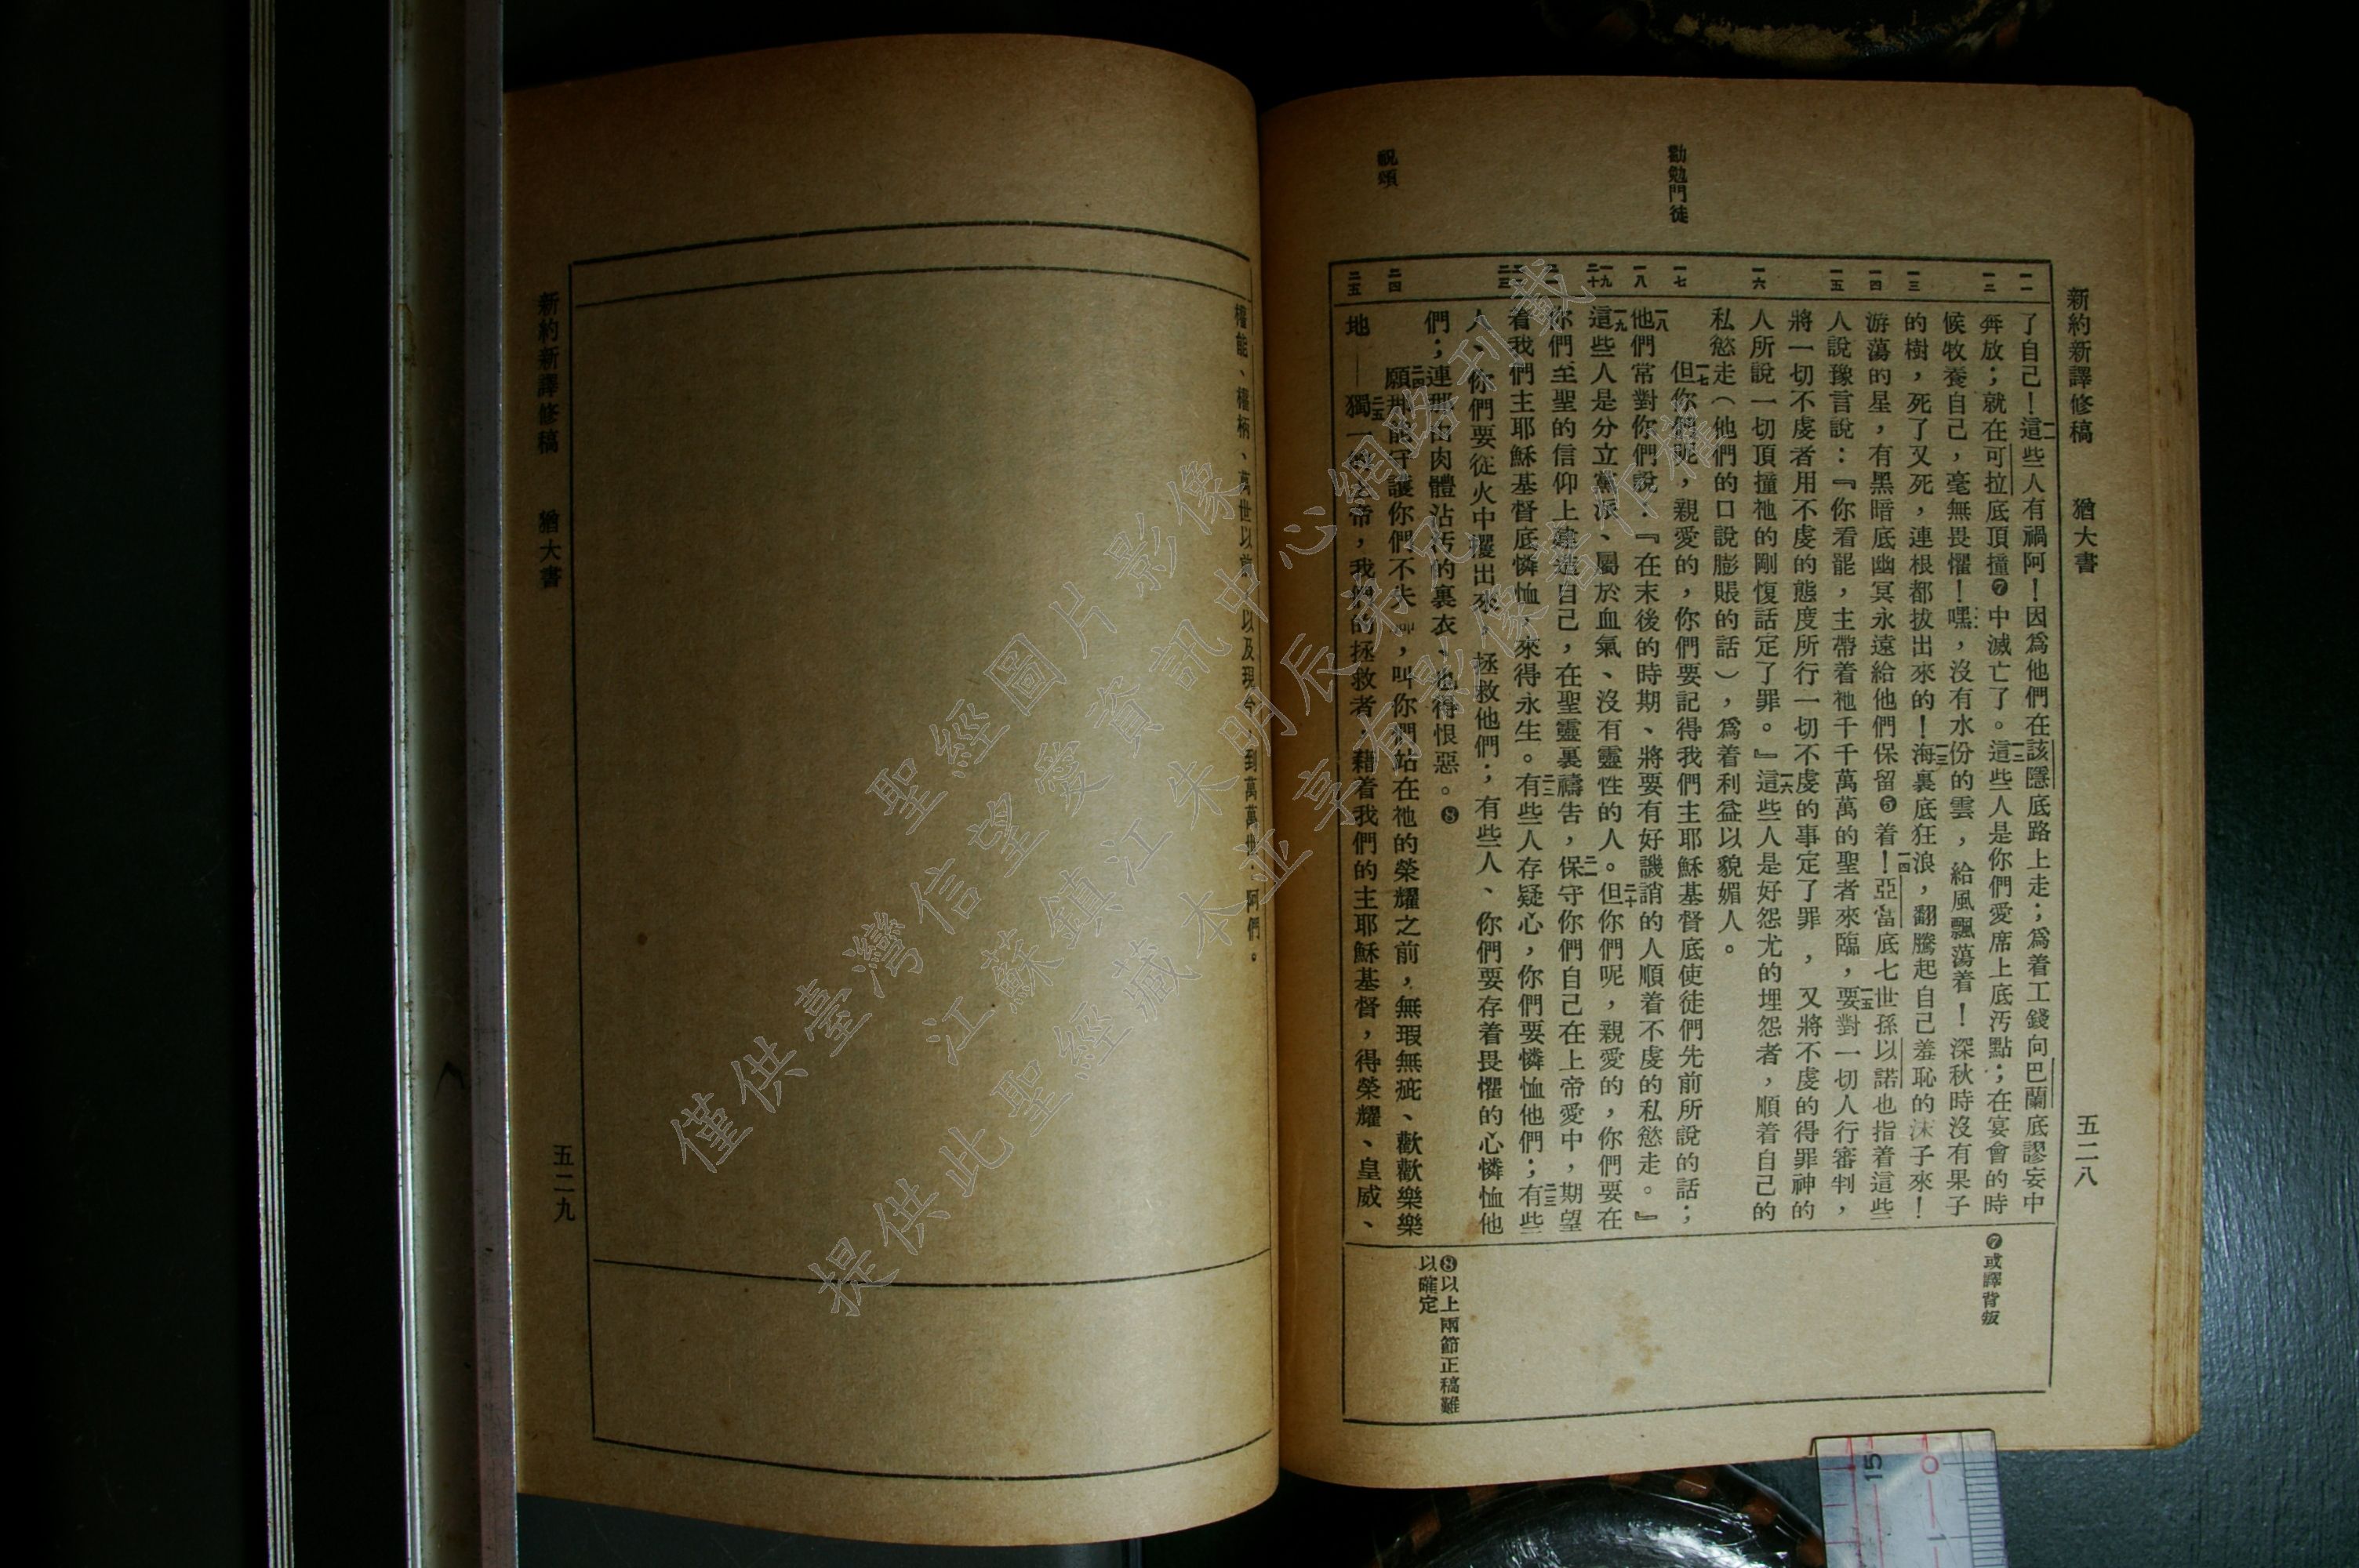 新約新譯修稿 猶大書 五二八
了自己！這些人有禍阿！因爲他們在該隱底路上走；爲着工錢向巴蘭底謬妄中
奔放；就在可拉底頂撞❼中滅亡了。這些人是你們愛席上底汚點；在宴會的時
候牧養自己，毫無畏懼！嘿，沒有水份的雲，給風飄蕩着！深秋時沒有果子
的樹，死了又死，連根都拔出來的！海裏底狂浪，翻騰起自己羞恥的沫子來！
游蕩的星，有黑暗底幽冥永遠給他們保留❺着！亞當底七世孫以諾也指着這些
人說豫言說：『你看罷，主帶着祂千千萬萬的聖者來臨，要對一切人行審判，
將一切不虔者用不虔的態度所行一切不虔的事定了罪，又將不虔的得罪神的
人所說一切頂撞祂的剛愎話定了罪。』這些人是好怨尤的埋怨者，順着自己的
私慾走（他們的口說膨賬的話），爲着利益以貌媚人。
勸勉門徒
但你們呢，親愛的，你們要記得我們主耶穌基督底使徒們先前所說的話；
他們常對你們說：『在末後的時期、將要有好譏誚的人順着不虔的私慾走。』
這些人是分立黨派、屬於血氣、沒有靈性的人。但你們呢，親愛的，你們要在
你們至聖的信仰上建造自己，在聖靈裏禱告，保守你們自己在上帝愛中，期望
着我們主耶穌基督底憐恤、來得永生。有些人存疑心，你們要憐恤他們；有些
人、你們要從火中攫出來，拯救他們；有些人、你們要存着畏懼的心憐恤他
們；連那由肉體沾汚的裏衣、也得恨惡。❽
祝頌
願那能守護你們不失，叫你們站在祂的榮耀之前，無瑕無疵、歡歡樂樂
地—獨一上帝，我們的拯救者，藉着我們的主耶穌基督，得榮耀、皇威、
一一
一二
一三
一四
一五
一六
一七
一八
一九
二十
二三
二四
二五
❼或譯背叛
❽以上兩節正稿難
以確定
權能、權柄、萬世以前 以及現今、到萬萬世 阿們。
新約新譯修稿 猶大書 五二九
聖經圖片影像
僅供臺灣信望愛資訊中心網路刊載
江蘇鎮江朱明辰弟兄
提供此聖經藏本並享有影像著作權
15 0 1